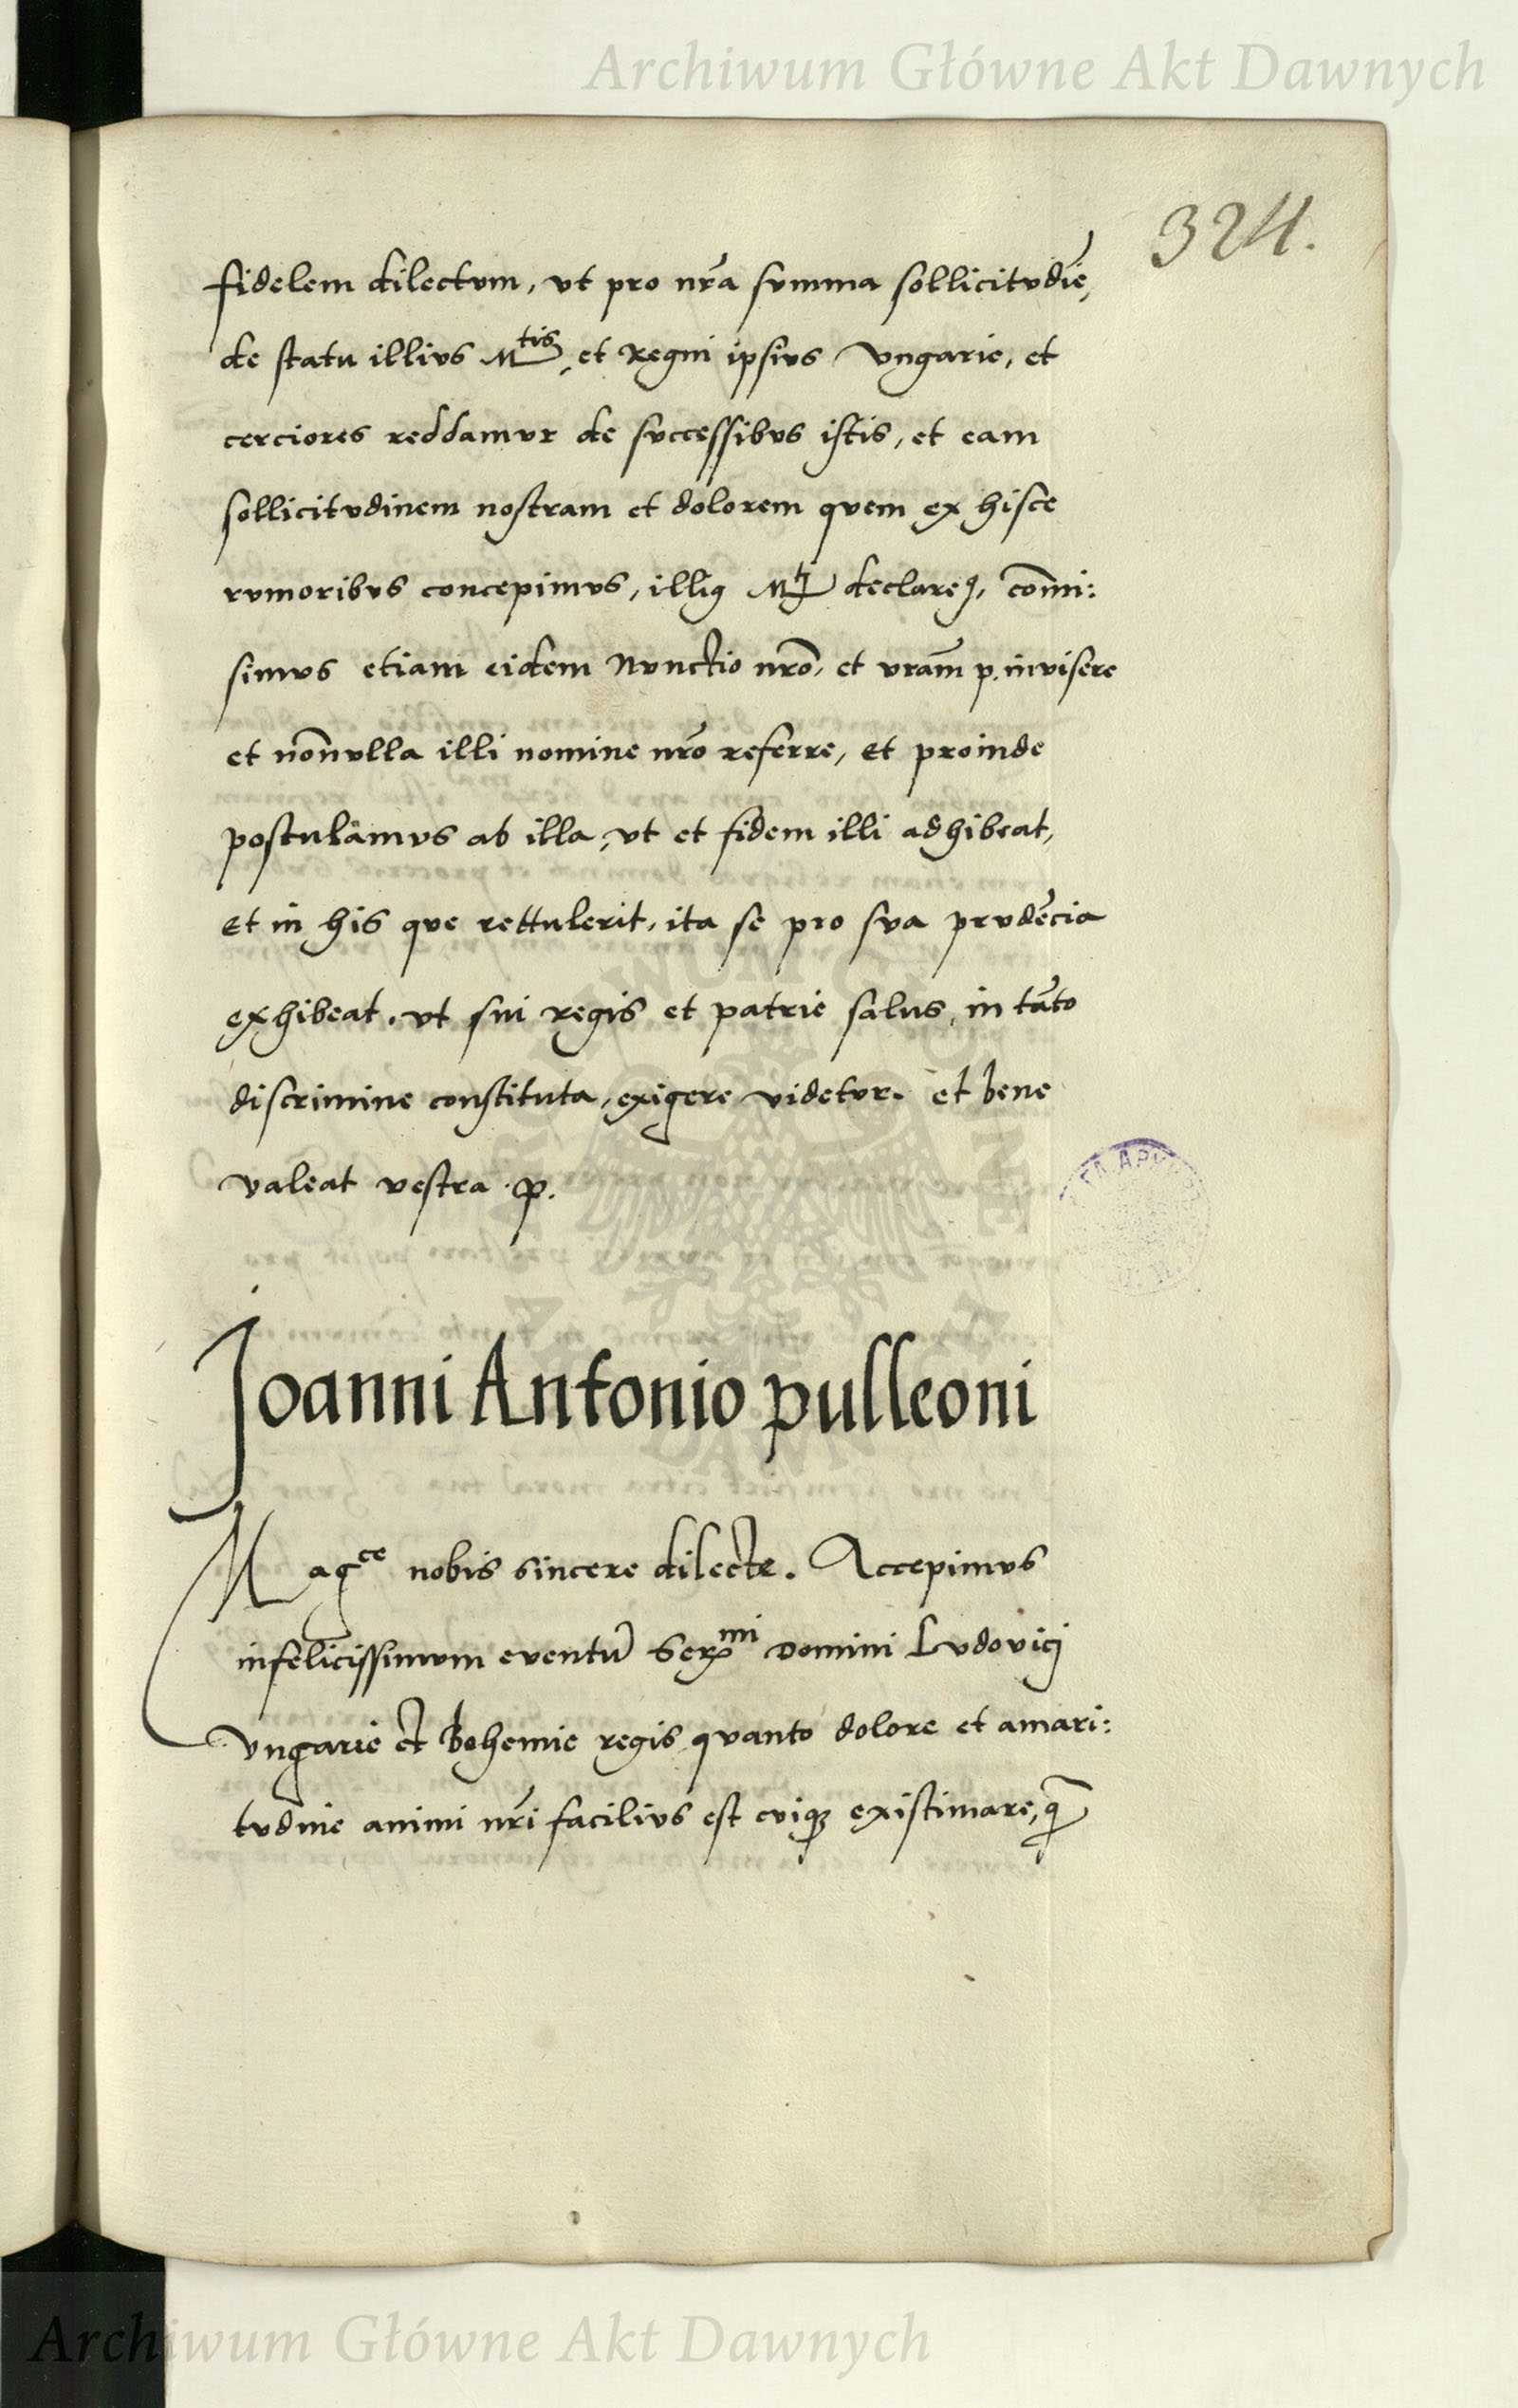 Archiwum Główne Akt Dawnych
324.
fidelem dilectvm, vt pro nr̃a svmma sollicitvdĩe,
de statu illivs M^tis, et Regni ipsivs Vngarie, et
cerciores reddamvr de svccessibvs istis, et eam
sollicitvdinem nostram et dolorem qvem ex hisce
rvmoribvs concepimvs, illiꝯ Mtj declareꝫ, com̃i:
simvs etiam eidem Nvnctio nr̃o, et vr̃am p. invisere
et noñvlla illi nomine nr̃o referre, Et proinde
postulamvs ab illa, vt et fidem illi adhibeat,
Et in his qve rettulerit, ita se pro sva prvdẽcia
exhibeat, vt sui regis et patrie salus, in tãto
discrimine constituta, exigere videtvr. et bene
valeat vestra p.
Joanni Antonio pulleoni
Mag^ce nobis sincere dilecte. Accepimvs
infelicissimvm eventũ Ser^mi Domini Lvdovici
Vngarie et Bohemie regis qvanto dolore et amari:
tvdine animi nr̃i facilivs est cviqꝫ existimare, q̃
ARCHIWUM GŁÓWNE
AKT DAWNYCH
Archiwum Główne Akt Dawnych